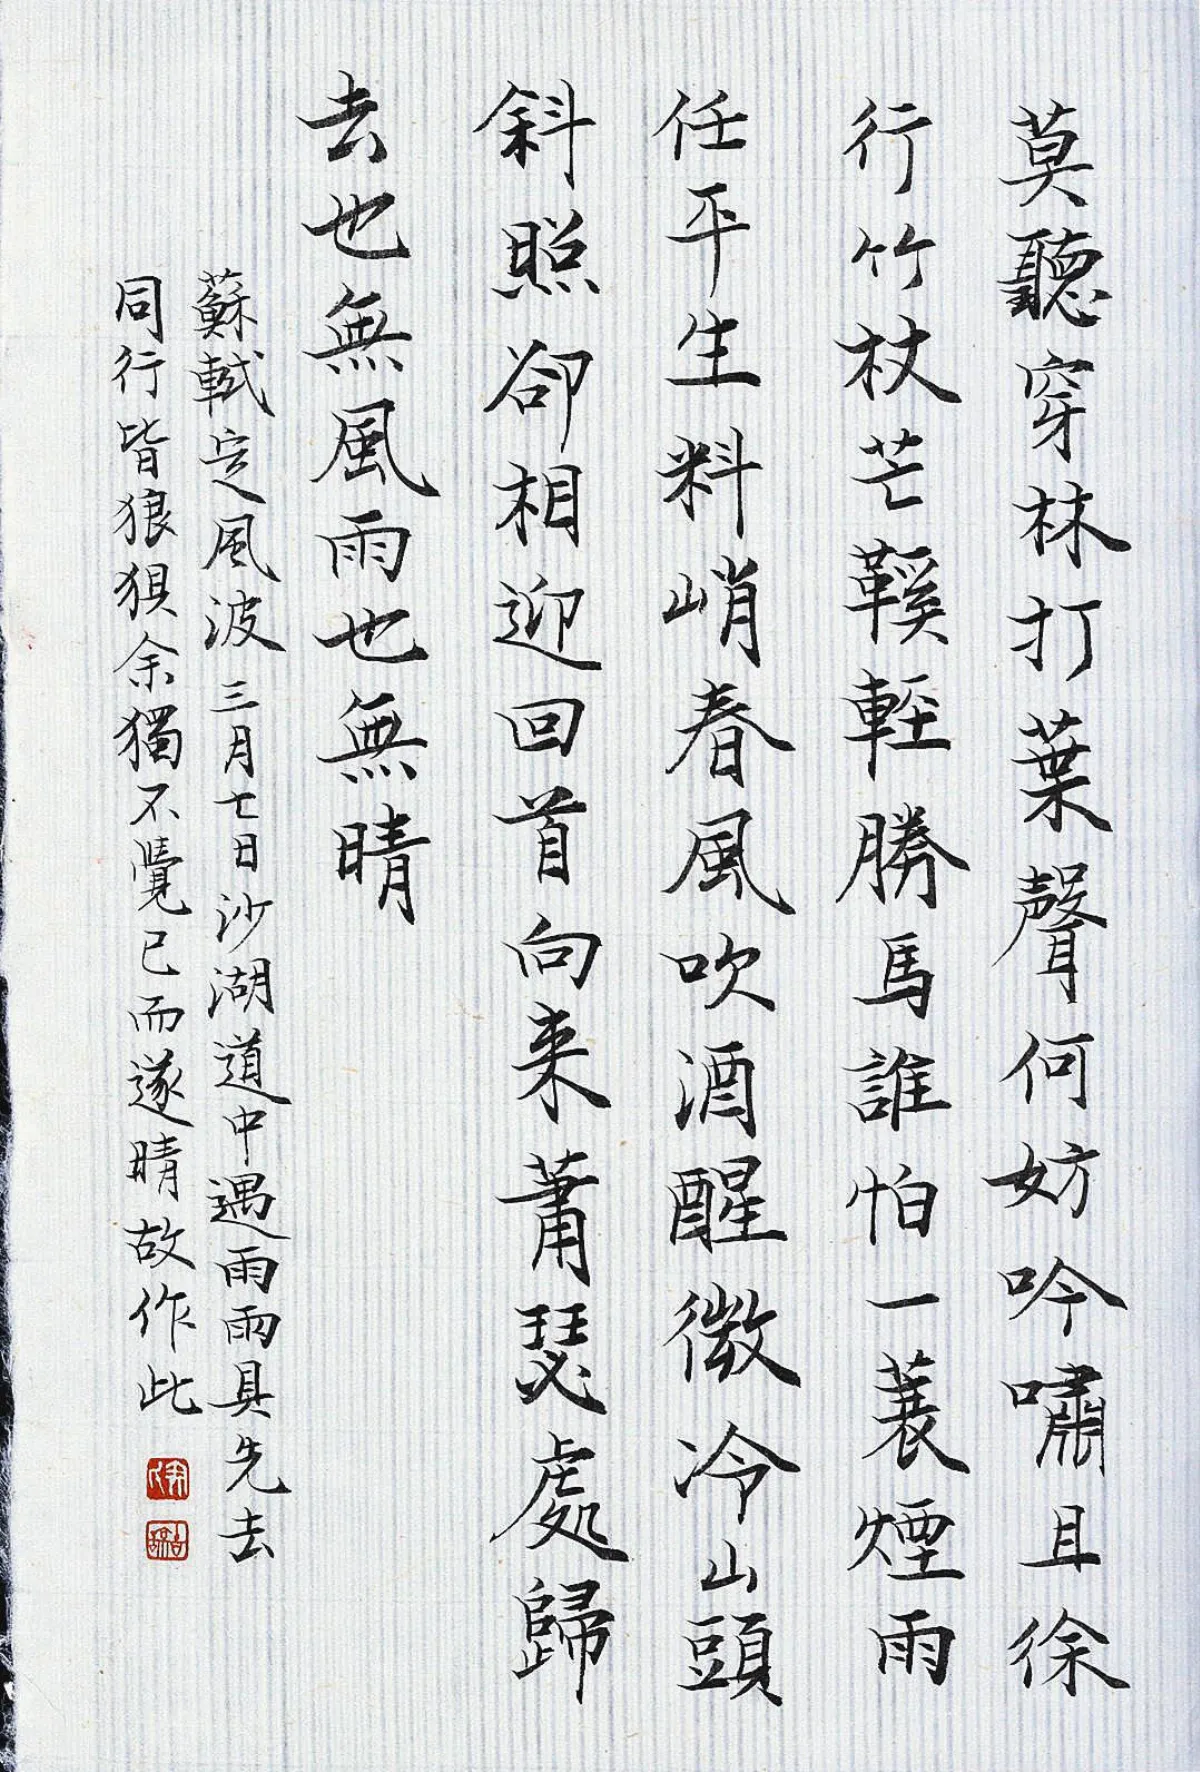 莫聽穿林打葉聲何妨吟嘯且徐
行竹杖芒鞵輕勝馬誰怕一蓑煙雨
任平生料峭春風吹酒醒微冷山頭
斜照卻相迎回首向来蕭瑟處歸
去也無風雨也無晴
蘇軾定風波三月七日沙湖道中遇雨雨具先去
同行皆狼狽余獨不覺已而遂晴故作此